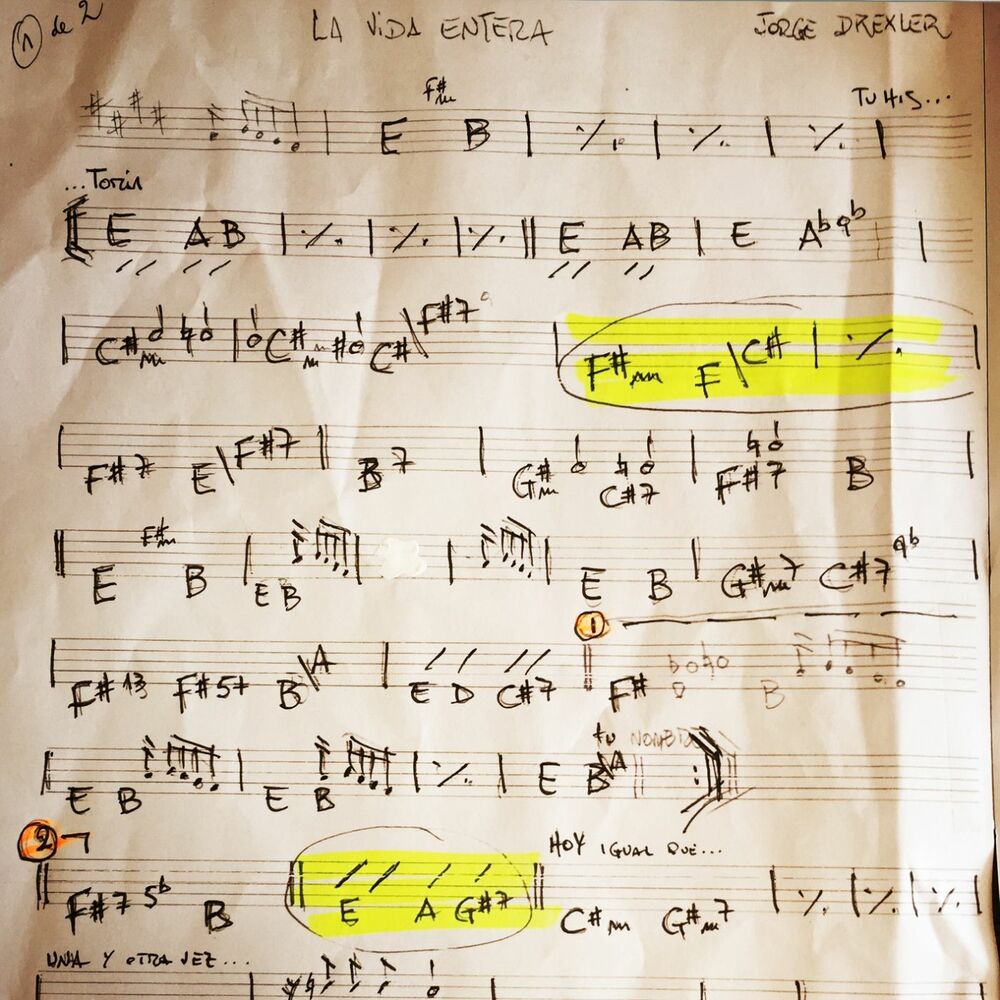 1 de 2 LA VIDA ENTERA JORGE DREXLER
F#m TU HIS...
E B
...TORIA
E A B E A B E Ab 9b
C#m C#m C#\F#7 F#m F\C#
F#7 E\F#7 B7 G#m C#7 F#7 B
F#m
E B E B E B G#m7 C#7 9b
1
F#13 F#5+ B\A E D C#7 F# B
TU NOMBRE
E B E B E B\A
2
HOY IGUAL QUE...
F#7 5b B E A G#7 C#m G#m7
UNA Y OTRA VEZ...